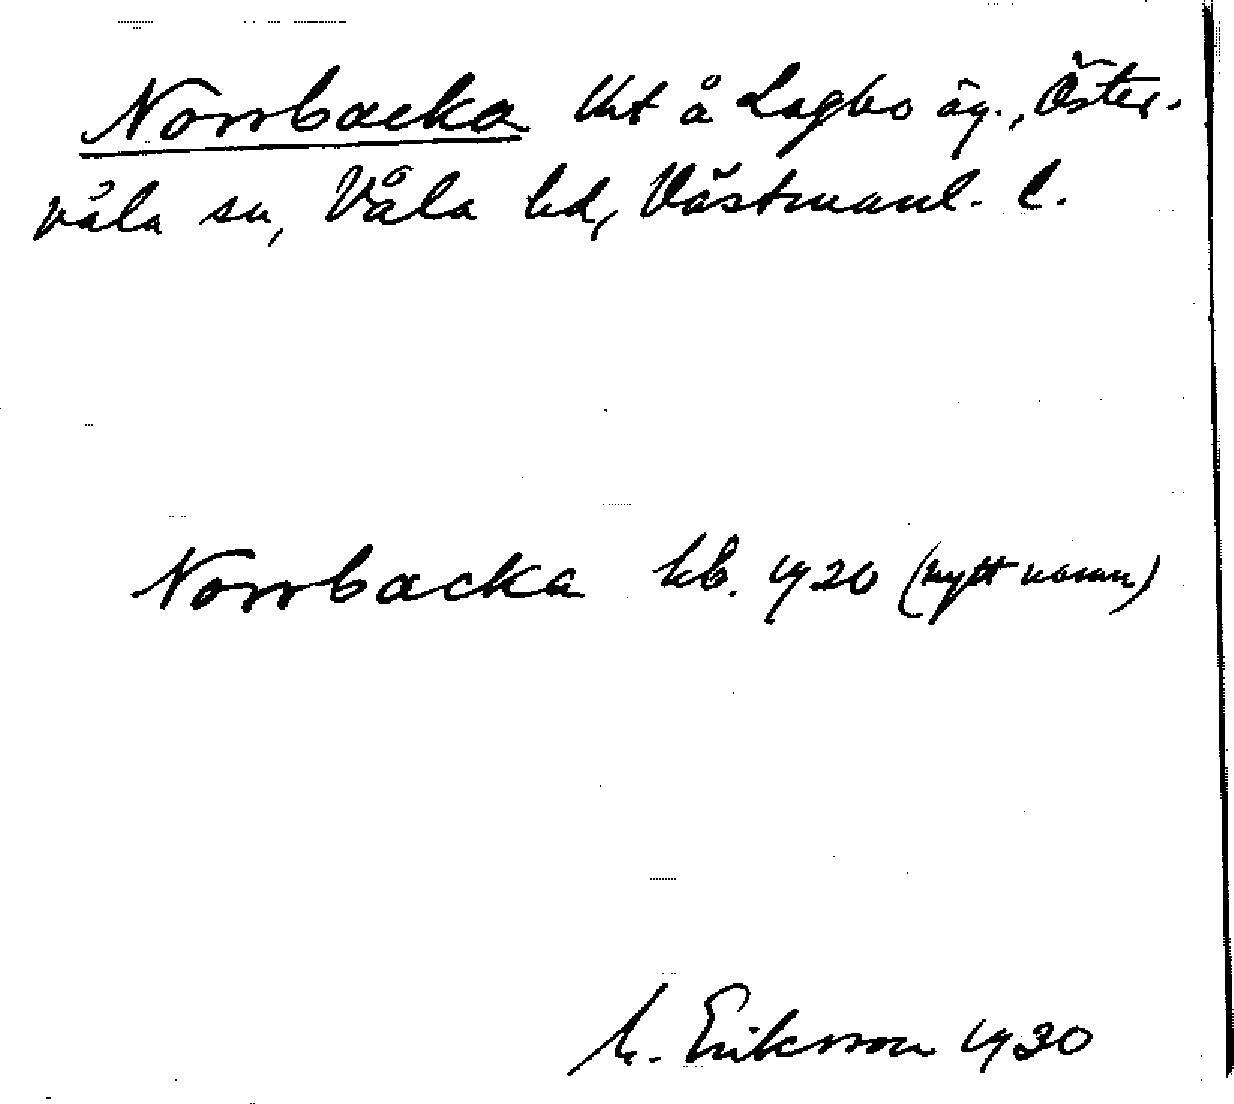 Norrbacka tht å Lagbo äg., Öster-
våla sn, Våla hd, Västmanl. l.
Norrbacka kb. 1920 (nytt namn)
M. Eriksson 1930